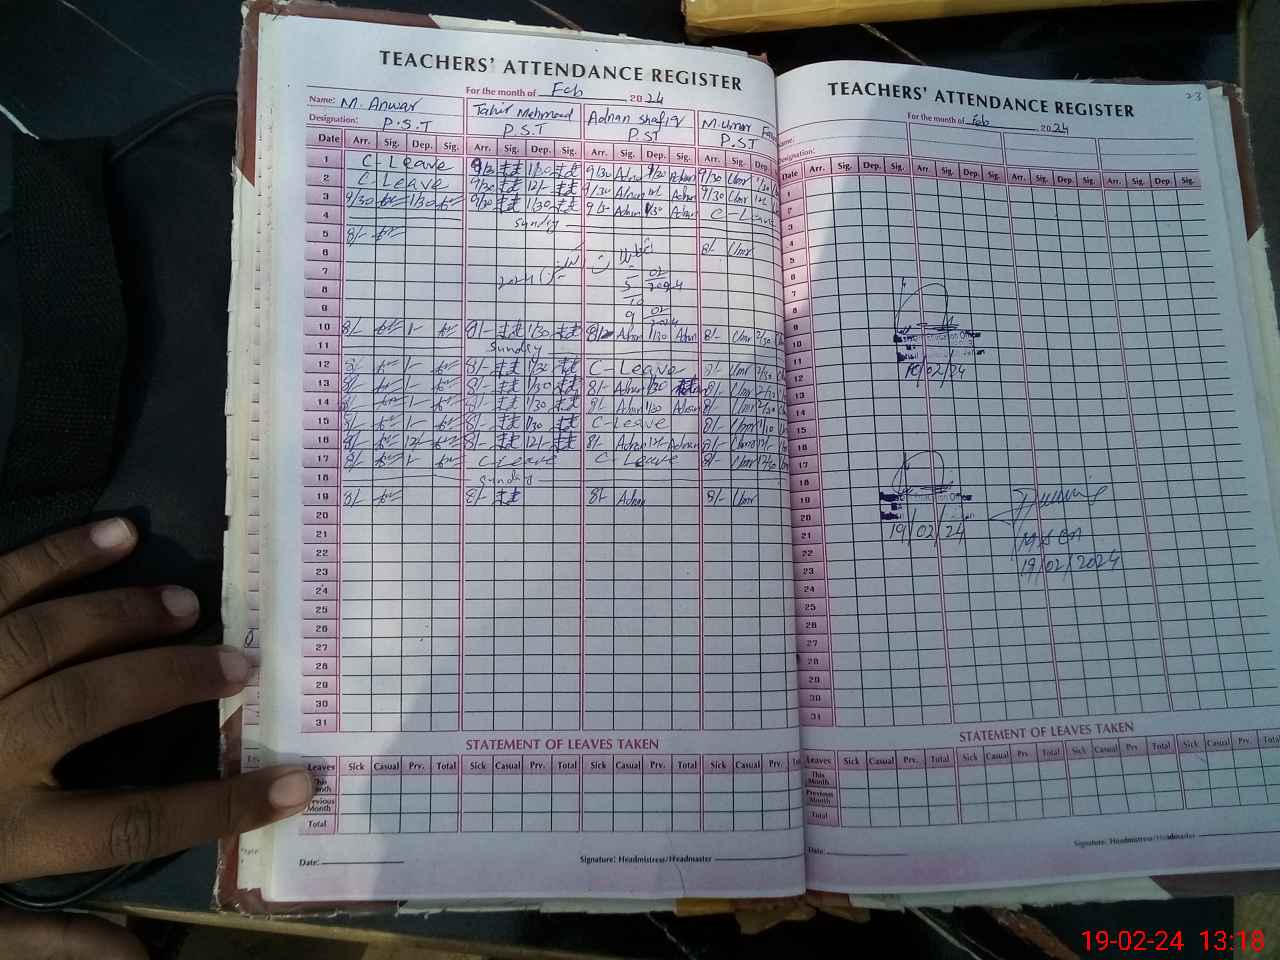 TEACHERS' ATTENDANCE REGISTER
For the month of Feb 2024
Name: M. Anwar Tahir Mehmood Adnan Shafiq M. Umar
Designation: P.S.T P.S.T P.ST P.ST
Date Arr. Sig. Dep. Sig. Arr. Sig. Dep. Sig. Arr. Sig. Dep. Sig. Arr. Sig. Dep.
1 C-Leave 9/30 1/30 9/30 Adnan 1/30 Adnan 9/30 Umr 1/30
2 C-Leave 9/30 12/- 9/30 Adnan 12/- Adnan 9/30 Umr 12/-
3 9/30 1/30 9/30 1/30 9/- Adnan 1/30 Adnan C-Leave
4 Sunday
5 8/-
6 8/- Umr
7
8
9
5 02 2024
9 02 2024
10 8/- 1/- 8/- 1/30 8/- Adnan 1/30 Adnan 8/- Umr 2/30
11 Sunday
12 8/- 1/- 8/- 1/30 C-Leave 8/- Umr 2/30
13 8/- 1/- 8/- 1/30 8/- Adnan 1/30 8/- Umr 2/30
14 8/- 1/- 8/- 1/30 8/- Adnan 1/30 Adnan 8/- Umr 2/30
15 8/- 1/- 8/- 1/30 C-Leave 8/- Umr 1/10
16 8/- 12/- 8/- 12/- 8/- Adnan 12/- Adnan 8/- Umr 12/-
17 8/- 1/- C-Leave C-Leave 8/- Umr 12/30
18 Sunday
19 8/- 8/- 8/- Adnan 8/- Umr
20
21
22
23
24
25
26
27
28
29
30
31
STATEMENT OF LEAVES TAKEN
Leaves Sick Casual Prv. Total Sick Casual Prv. Total Sick Casual Prv. Total Sick Casual Prv.
This Month
Previous Month
Total
Date: Signature: Headmistress/Headmaster
23
TEACHERS' ATTENDANCE REGISTER
For the month of Feb 2024
Name:
Designation:
Date Arr. Sig. Dep. Sig. Arr. Sig. Dep. Sig. Arr. Sig. Dep. Sig. Arr. Sig. Dep. Sig.
1
2
3
4
5
6
7
8
9
10
Education Officer
11
12
10/02/24
13
14
15
16
17
18
19
Education Officer
20
21
19/02/24
22
19/02/2024
23
24
25
26
27
28
29
30
31
STATEMENT OF LEAVES TAKEN
Leaves Sick Casual Prv. Total Sick Casual Prv. Total Sick Casual Prv. Total Sick Casual Prv. Total
This Month
Previous Month
Total
Date: Signature: Headmistress/Headmaster
19-02-24 13:18